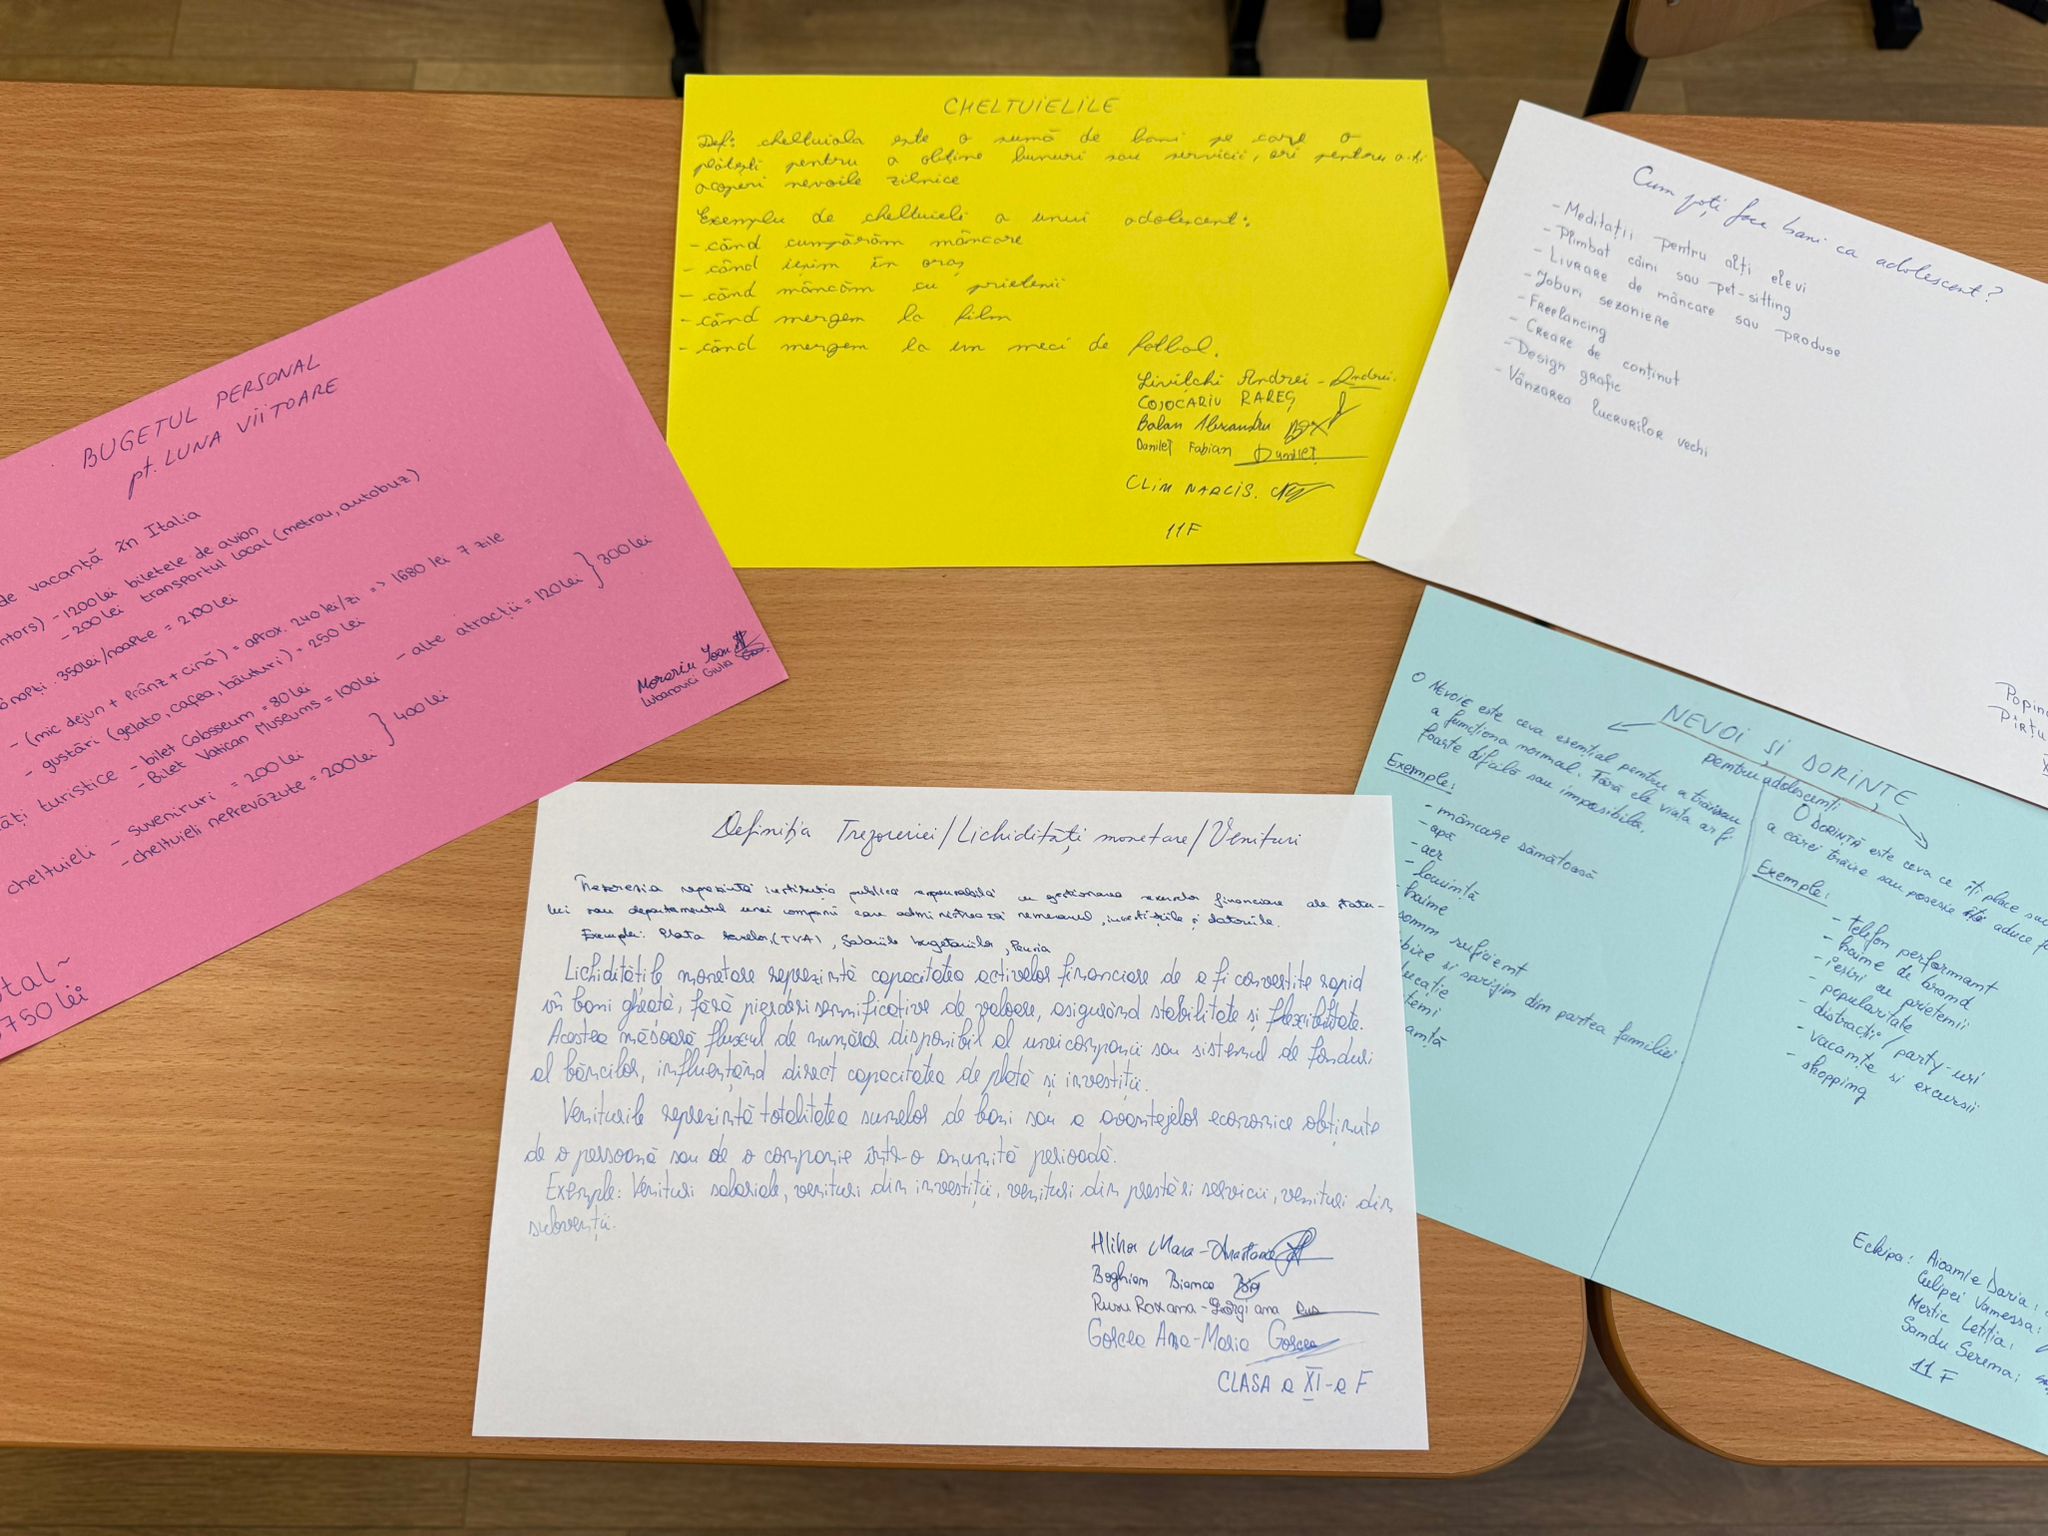 CHELTUIELILE
Def: cheltuiala este o sumă de bani pe care o
plătești pentru a obține bunuri sau servicii, ori pentru a-ți
acoperi nevoile zilnice
Exemplu de cheltuieli a unui adolescent:
- când cumpărăm mâncare
- când ieșim în oraș
- când mâncăm cu prietenii
- când mergem la film
- când mergem la un meci de fotbal.
Andrei - Andrei
COJOCARIU RAREȘ
Balan Alexandru
Danileț Fabian Danileț
CLIM NARCIS.
11F
Cum poți face bani ca adolescent?
- Meditații pentru alți elevi
- Plimbat câini sau pet-sitting
- Livrare de mâncare sau produse
- Joburi sezoniere
- Freelancing
- Creare de conținut
- Design grafic
- Vânzarea lucrurilor vechi
BUGETUL PERSONAL
pt. LUNA VIITOARE
de vacanță în Italia
- 1200 lei biletele de avion
- 200 lei transportul local (metrou, autobuz)
350 lei/noapte = 2100 lei
- (mic dejun + prânz + cină) = aprox. 240 lei/zi => 1680 lei 7 zile
- gustări (gelato, cafea, băuturi) = 250 lei
turistice - bilet Colosseum = 80 lei
- Bilet Vatican Museums = 100 lei - alte atracții = 120 lei } 300 lei
cheltuieli - suveniruri = 200 lei
- cheltuieli neprevăzute = 200 lei } 400 lei
750 lei
Morariu Ioan
Lubanovici Giulia
NEVOI și DORINTE
pentru adolescenți
O NEVOIE este ceva esențial pentru a trăi sau
a funcționa normal. Fără ele viata ar fi
foarte dificilă sau imposibila.
Exemple:
- mâncare sămătoasă
- apă
- aer
- locuință
- haime
somm suficient
si sprijim dim partea familiei
O DORINȚĂ este ceva ce îți place sau
a cărei trăire sau posesie aduce
Exemple:
- telefon performamt
- haime de bramd
- ieșiri cu prietemii
- popularitate
- distracții / party-uri
- vacamțe si excursii
- shopping
Echipa: Aioamie Daria:
Culipei Vamessa:
Mertic Letiția:
Samdu Seremа:
11 F
Definiția Trezoreriei/Lichidități monetare/Venituri
Trezoreria reprezintă instituția publică responsabilă cu gestionarea resurselor financiare ale statu-
lui sau departamentul unei companii care administrează numerarul, investițiile și datoriile.
Exemple: Plata taxelor, (TVA), Salariile bugetarilor, Pensia
Lichiditățile monetare reprezintă capacitatea activelor financiare de a fi convertite rapid
în bani gheață, fără pierderi semnificative de valoare, asigurând stabilitate și flexibilitate.
Acestea măsoară fluxul de numărar disponibil al unei companii sau sistemul de fonduri
al băncilor, influențând direct capacitatea de plată și investiții.
Veniturile reprezintă totalitatea sumelor de bani sau a avantajelor economice obținute
de o persoană sau de o companie într-o anumită perioadă.
Exemple: Venituri salariale, venituri din investiții, venituri din prestări servicii, venituri din
subvenții.
Hlihor Mara-Anastasia
Boghian Bianca
Rusu Roxana-Georgiana Rus
Goscea Ana-Maria Goscea
CLASA a XI-a F